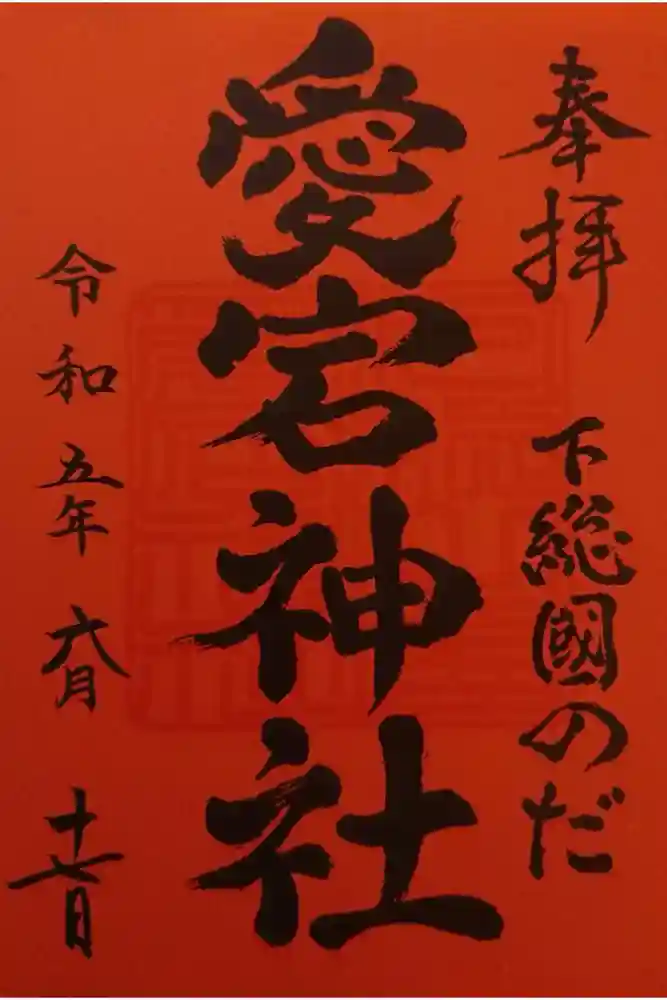 奉拝　下総國のだ
愛宕神社
令和五年六月十七日